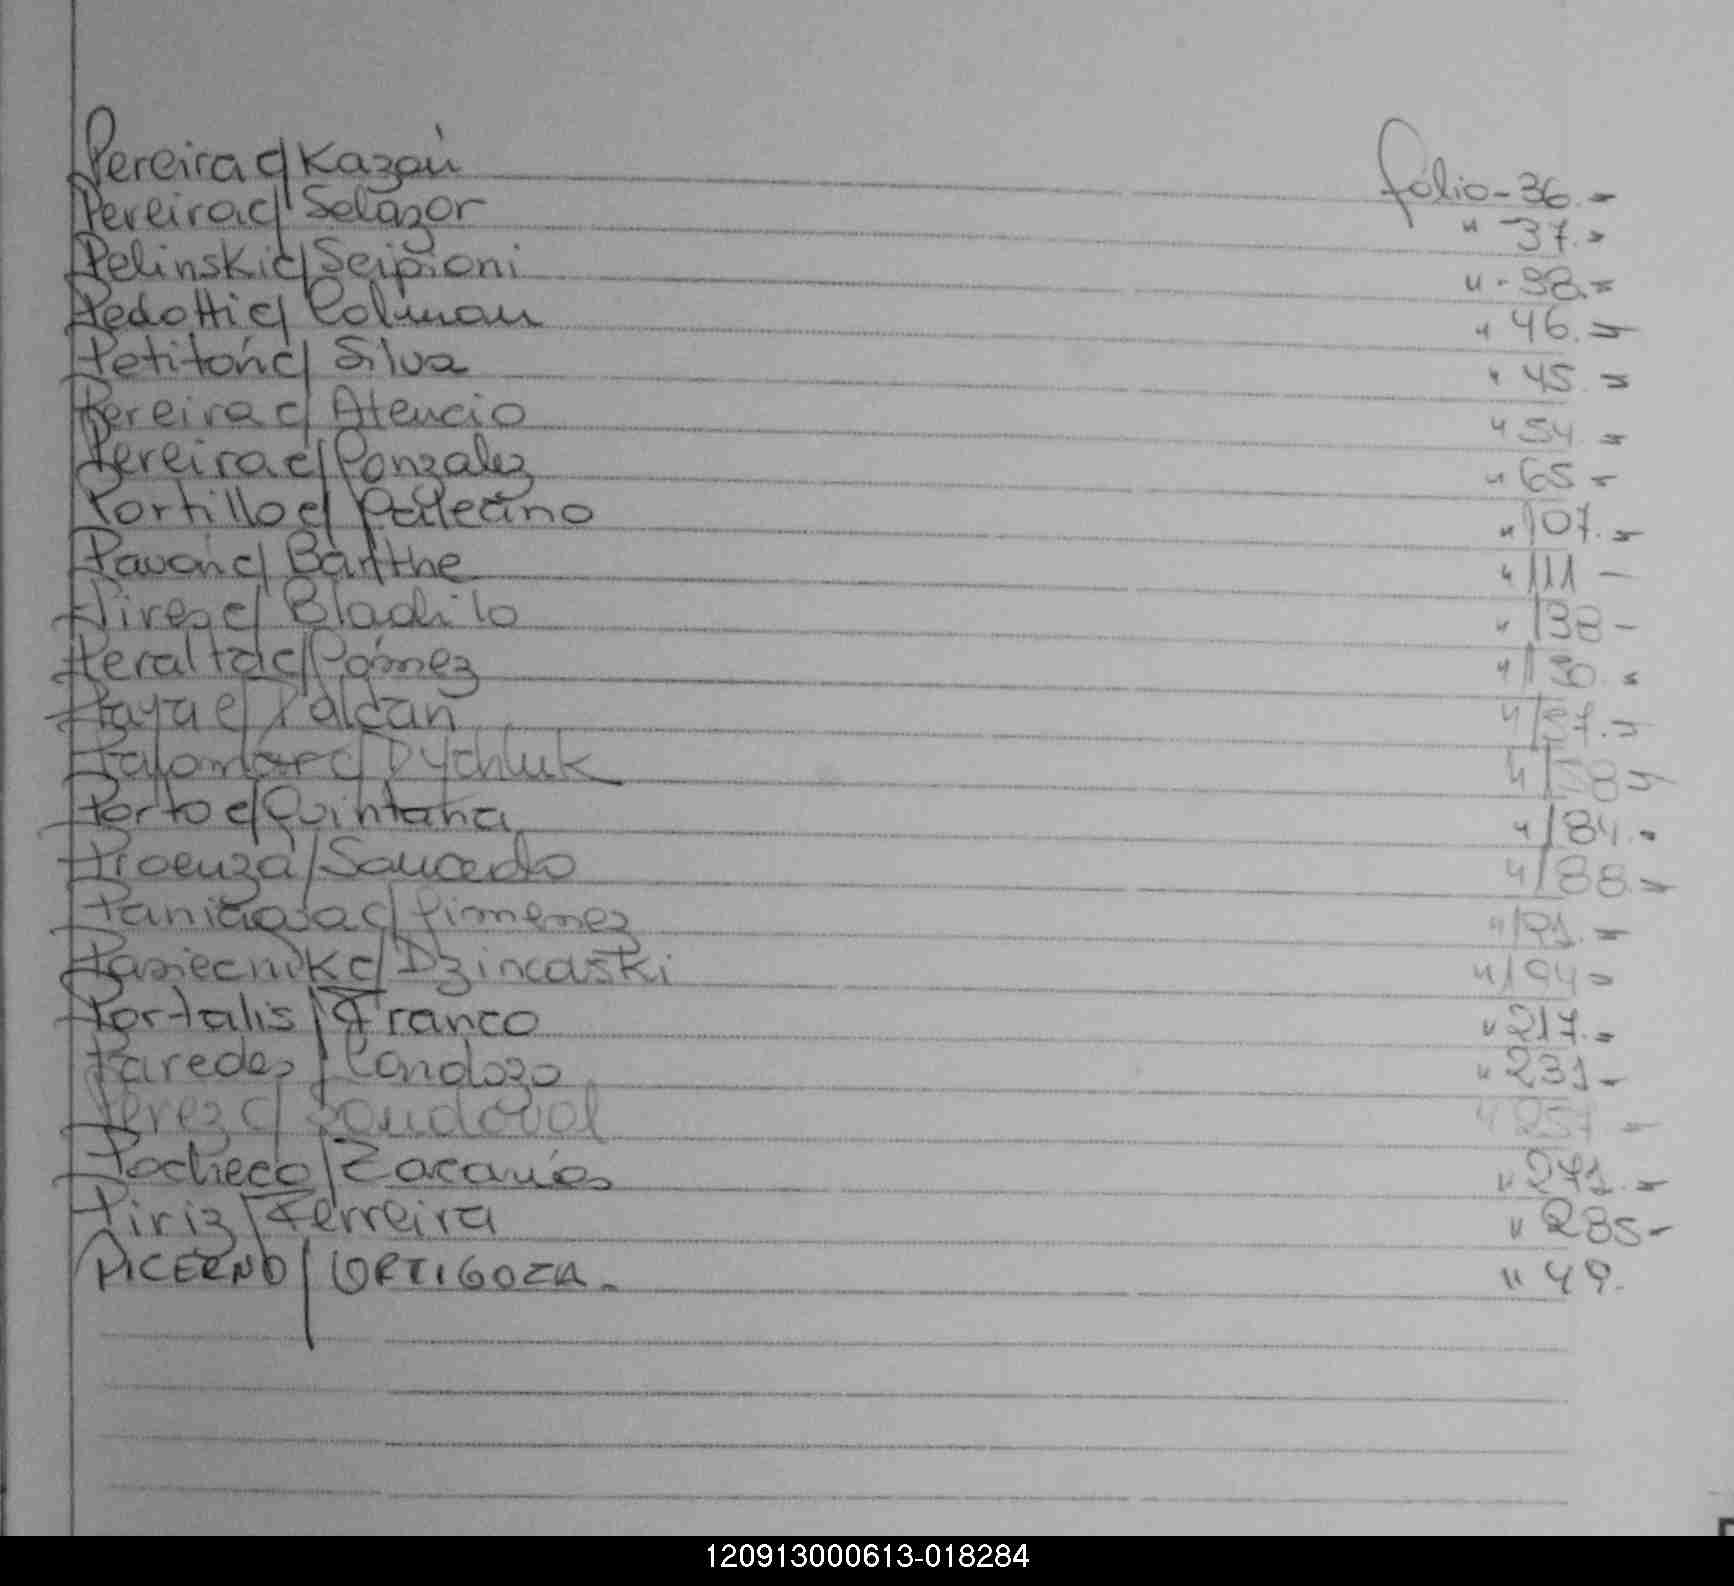 Pereira c/ Kazaú folio - 36.-
Pereira c/ Salazar " 37.-
Pelinski c/ Scipioni " - 38.-
Pedotti c/ Colman " 46.-
Petitón c/ Silva " 45.-
Pereira c/ Atencio " 54.-
Pereira c/ Gonzalez " 65-
Portillo c/ " 107.-
Pavón c/ Barthe " 111-
Pires c/ " 138-
Peralta c/ Gómez " 150.-
Paya c/ " 157.-
Palomar c/ Dychluk " 158-
Porto c/ Quintana " 184.-
Proenza / Saucedo " 188.-
Paniagua c/ Gimenez " 191.-
Pasiecnik c/ " 194-
Portalis / Franco " 217.-
Paredes / Candozo " 231-
Perez c/ Sandoval " 257.-
Pacheco / Zacarias " 271.-
Piriz / Ferreira " 285-
PICERNO / ORTIGOZA. " 49.
120913000613-018284